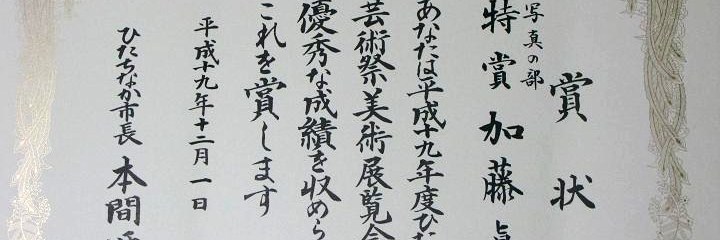 賞状
写真の部
特賞 加藤
あなたは平成十九年度ひた
芸術祭美術展覧会
優秀な成績を収めら
これを賞します
平成十九年十二月一日
ひたちなか市長 本間